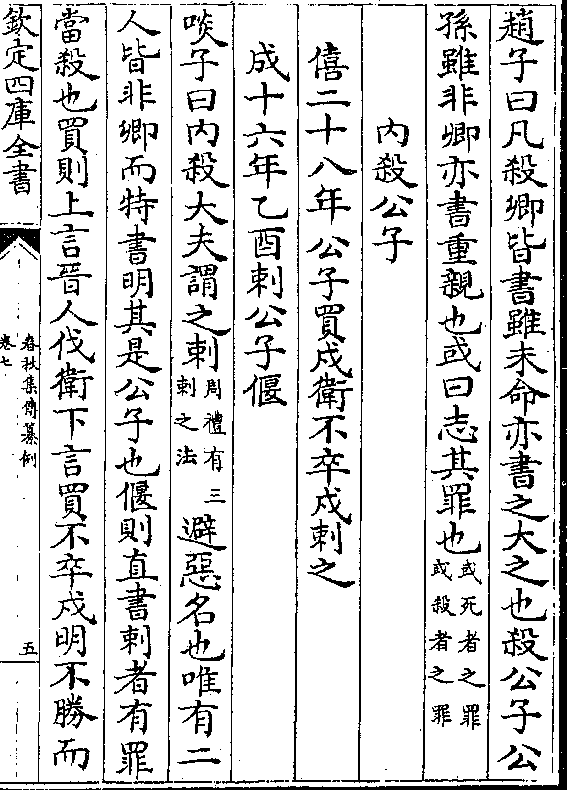 趙子曰凡殺卿皆書雖未命亦書之大之也殺公子公
孫雖非卿亦書重親也或曰志其罪也或死者之罪或殺者之罪
內殺公子
僖二十八年公子買戍衛不卒戍刺之
成十六年乙酉刺公子偃
啖子曰內殺大夫謂之刺周禮有三刺之法避惡名也唯有二
人皆非卿而特書明其是公子也偃則直書刺者有罪
當殺也買則上言晉人伐衛下言買不卒戍明不勝而
欽定四庫全書
春秋集傳纂例
卷七
五